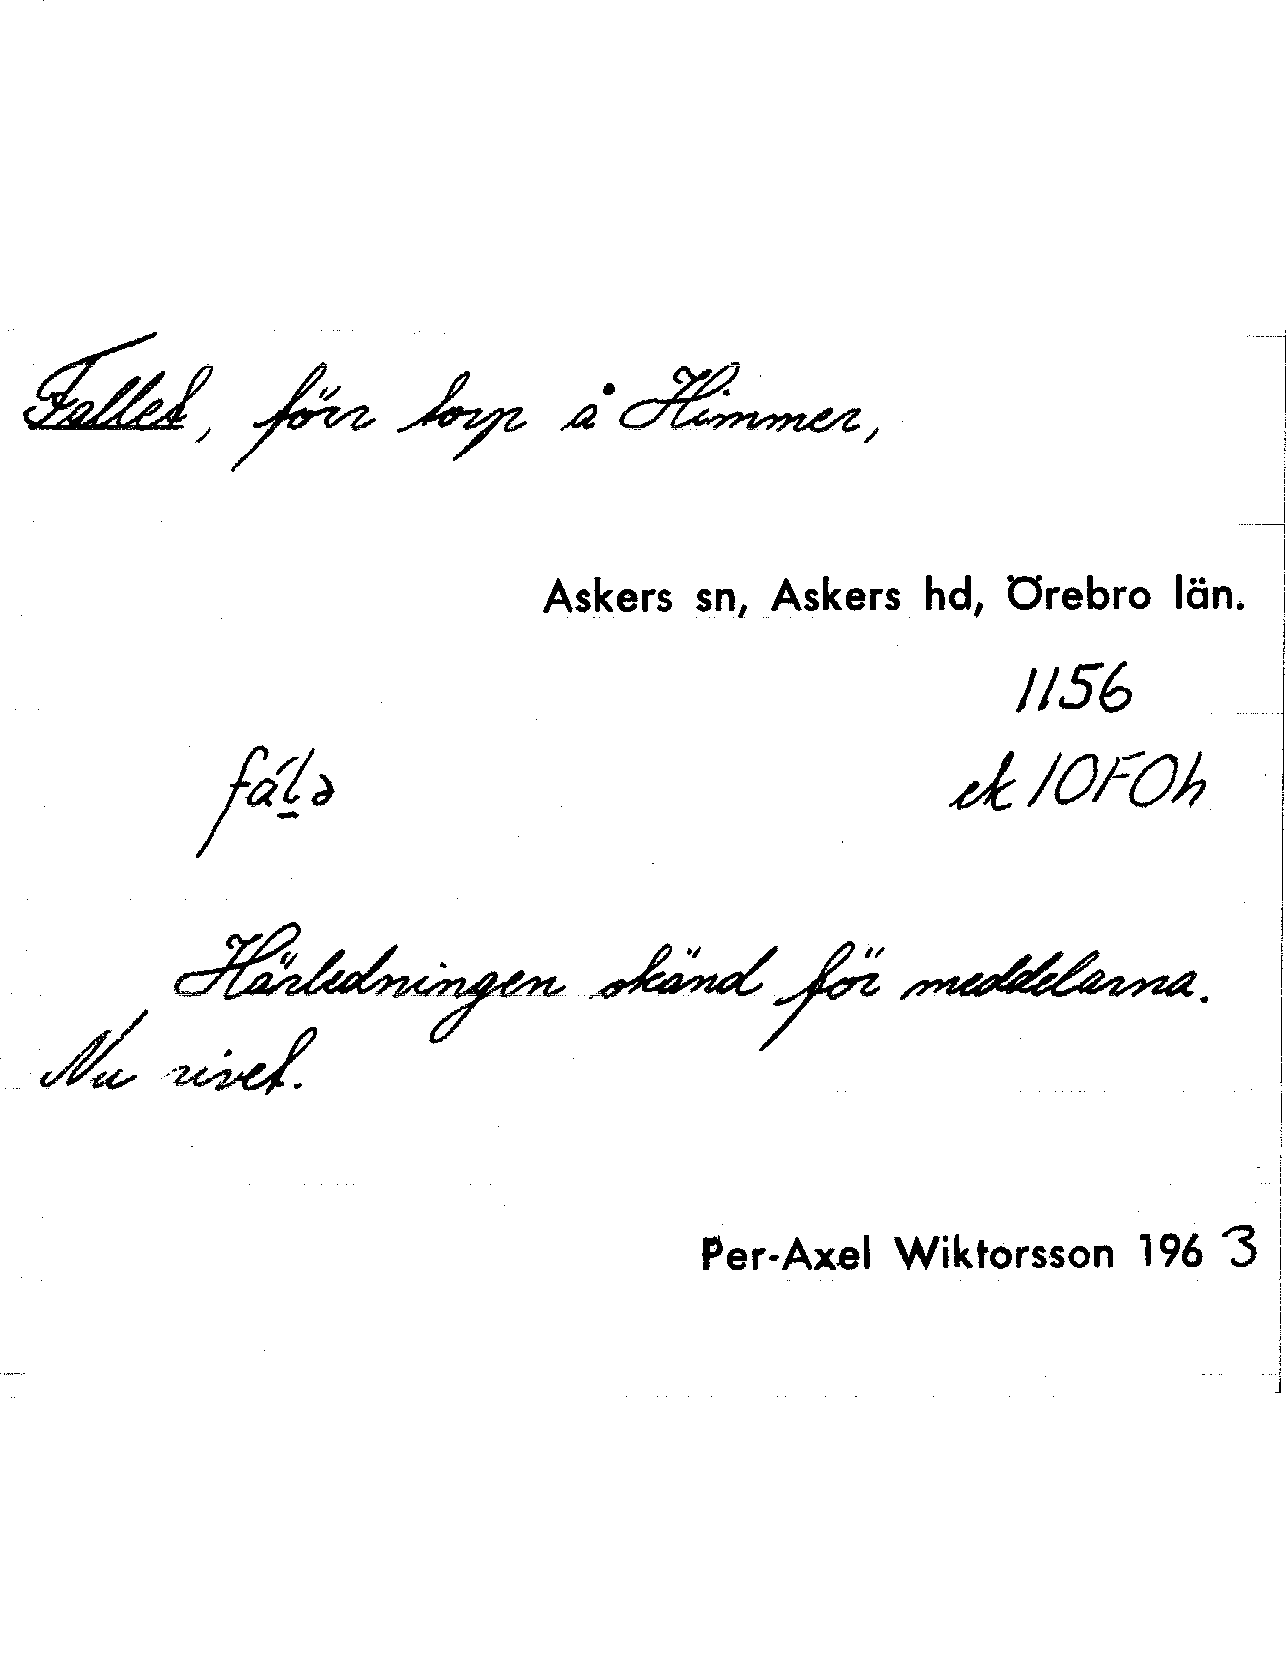 Fallet, förr torp å Himmer,
Askers sn, Askers hd, Örebro län.
1156
fál̠ə
ek 10F0h
Härledningen okänd för meddelarna.
Nu rivet.
Per-Axel Wiktorsson 1963